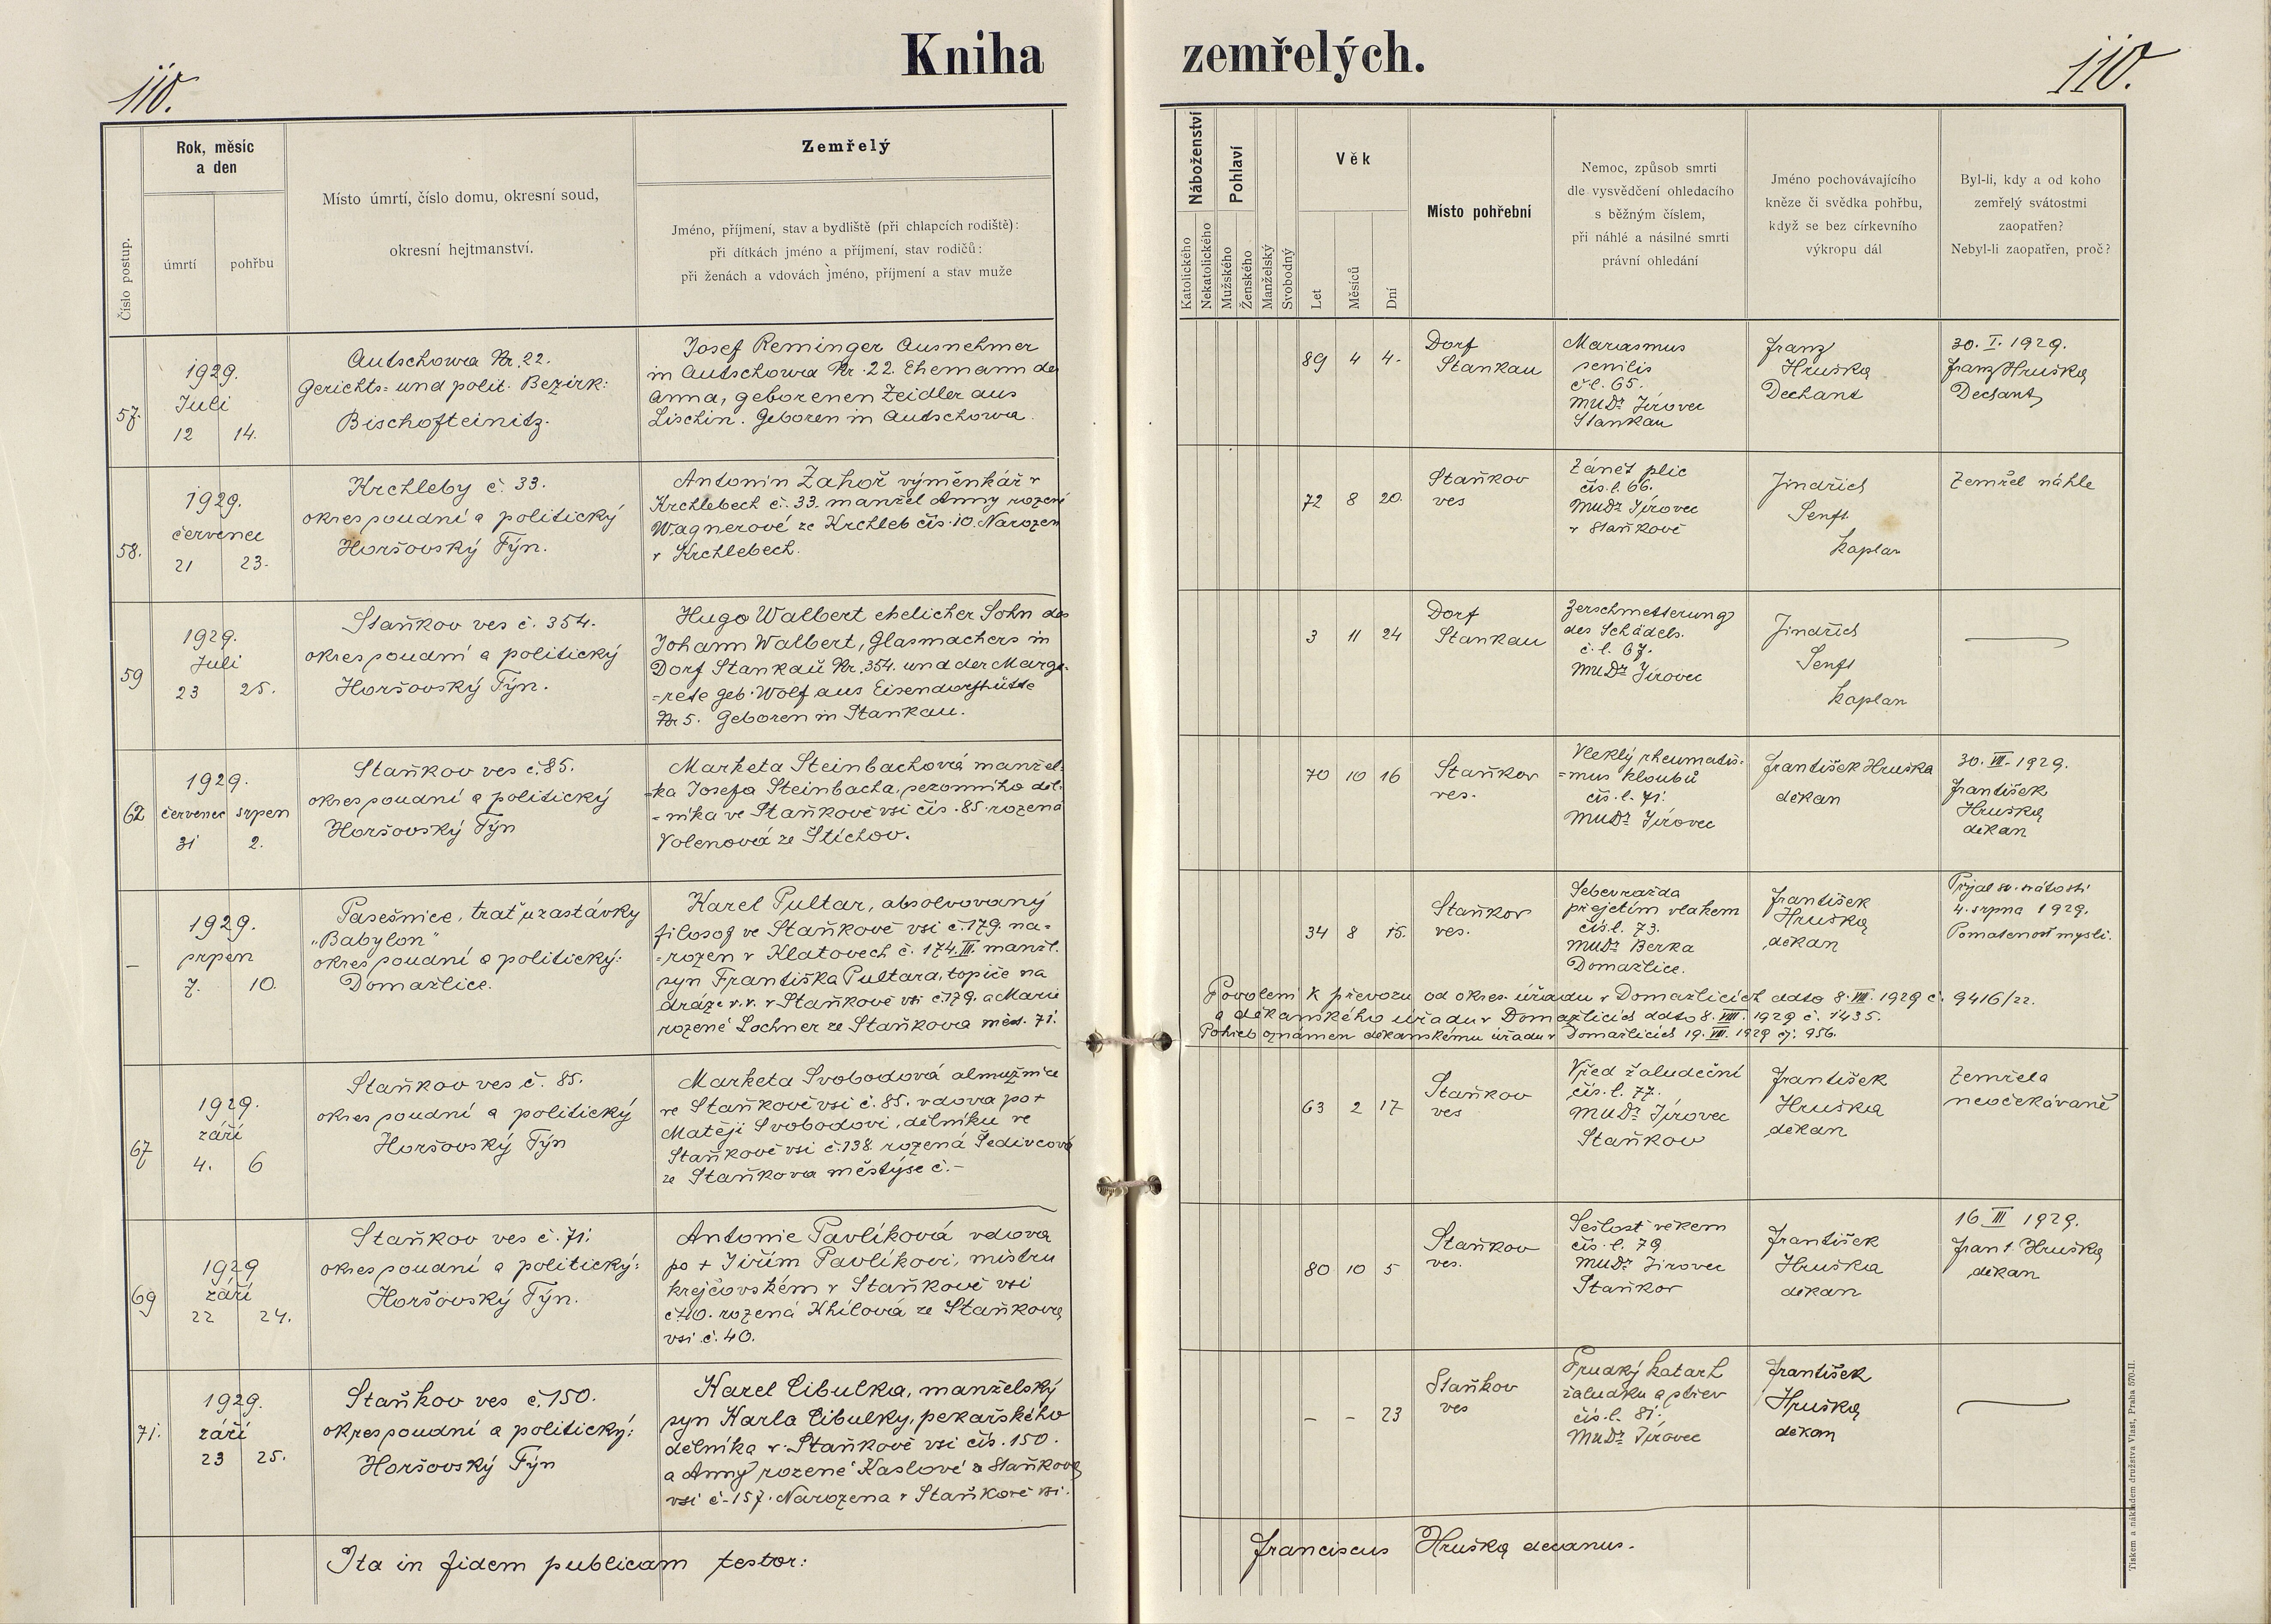 Kniha
zemřelých.
110.
110.
Číslo postup.
Rok, měsíc
a den
úmrtí
pohřbu
Místo úmrtí, číslo domu, okresní soud,
okresní hejtmanství.
Zemřelý
Jméno, příjmení, stav a bydliště (při chlapcích rodiště):
při dítkách jméno a příjmení, stav rodičů:
při ženách a vdovách jméno, příjmení a stav muže
Náboženství
Katolického
Nekatolického
Pohlaví
Mužského
Ženského
Manželský
Svobodný
Věk
Let
Měsíců
Dní
Místo pohřební
Nemoc, způsob smrti
dle vysvědčení ohledacího
s běžným číslem,
při náhlé a násilné smrti
právní ohledání
Jméno pochovávajícího
kněze či svědka pohřbu,
když se bez církevního
výkropu dál
Byl-li, kdy a od koho
zemřelý svátostmi
zaopatřen?
Nebyl-li zaopatřen, proč?
57.
1929.
Juli
12 14.
Autschowa Nr. 22.
Gerichts= und polit. Bezirk:
Bischofteinitz.
Josef Reminger Ausnehmer
in Autschowa Nr. 22. Ehemann de
Anna, geborenen Zeidler aus
Lischin. Geboren in Autschowa.
89 4 4.
Dorf
Stankau
Mariasmus
senilis
č.l. 65.
MUDr Jírovec
Stankau
Franz
Hruška
Dechant
30. I. 1929.
Franz Hruška
Dechant
58.
1929.
červenec
21 23.
Krchleby č. 33.
okres soudní a politický
Horšovský Týn.
Antonín Zahoř výměnkář v
Krchlebech č. 33. manžel Anny rození
Wagnerové ze Krchleb čís. 10. Narozen
v Krchlebech.
72 8 20.
Staňkov
ves
Zánět plic
čís.l. 66.
MUDr Jírovec
v Staňkově
Jindřich
Senft
kaplan
Zemřel náhle
59
1929.
Juli
23 25.
Staňkov ves č. 354.
okres soudní a politický
Horšovský Týn.
Hugo Walbert ehelicher Sohn des
Johann Walbert, Glasmachers in
Dorf Stankau Nr. 354. und der Marga=
=rete geb. Wolf aus Eisendorfhütte
Nr 5. Geboren in Stankau.
3 11 24
Dorf
Stankau
Zerschmetterung
des Schädels.
č.l. 67.
MUDr Jírovec
Jindřich
Senft
kaplan
62
1929.
červenec srpen
31 2.
Staňkov ves č. 85.
okres soudní a politický
Horšovský Týn
Marketa Steinbachová manžel=
=ka Josefa Steinbacha, sezonního děl=
=níka ve Staňkově vsi čís. 85. rozená
Volenová ze Štichov.
70 10 16
Staňkov
ves.
Vleklý rheumatis=
=mus kloubů
čís. l. 71.
MUDr Jírovec
František Hruška
děkan
30. VII. 1929.
František
Hruška
děkan
–
1929.
srpen
7. 10.
Pasešnice, trať u zastávky
„Babylon"
okres soudní a politický:
Domažlice.
Karel Pultar, absolvovaný
filosof ve Staňkově vsi č. 179. na=
=rozen v Klatovech č. 174. III. manžl.
syn Františka Pultara, topiče na
dráze v.v. v Staňkově vsi č. 179. a Marie
rozené Lochner ze Staňkova měst. 71.
34 8 15.
Staňkov
ves.
Sebevražda
přejetím vlakem
čís.l. 73.
MUDr Berka
Domažlice.
František
Hruška
děkan
Přijal sv. svátosti
4. srpna 1929.
Pomatenost mysli.
Povolení k převozu od okres. úřadu v Domažlicích ddto 8. VIII. 1929 č. 9416/22.
a děkanského úřadu v Domažlicích ddto 8. VIII. 1929 č. 1435.
Pohřeb oznámen děkanskému úřadu v Domažlicích 19. VIII. 1929 čj. 956.
67
1929.
září
4. 6
Staňkov ves č. 85.
okres soudní a politický
Horšovský Týn
Marketa Svobodová almužnice
ve Staňkově vsi č. 85. vdova po +
Matěji Svobodovi, dělníku ve
Staňkově vsi č. 138 rozená Šedivcová
ze Staňkova městýse č.–
63 2 17
Staňkov
ves
Vřed žaludeční
čís.l. 77.
MUDr Jírovec
Staňkov
František
Hruška
děkan
Zemřela
neočekávaně
69
1929
září
22 24.
Staňkov ves č. 71.
okres soudní a politický:
Horšovský Týn.
Antonie Pavlíková vdova
po + Jiřím Pavlíkovi, mistru
krejčovském v Staňkově vsi
č. 40. rozená Khilová ze Staňkova
vsi č. 40.
80 10 5
Staňkov
ves.
Sešlost věkem
čís. l. 79
MUDr Jírovec
Staňkov
František
Hruška
děkan
16. III 1929.
Frant. Hruška
děkan
71.
1929.
září
23 25.
Staňkov ves č. 150.
okres soudní a politický:
Horšovský Týn
Karel Cibulka, manželský
syn Karla Cibulky, pekařského
dělníka v Staňkově vsi čís. 150.
a Anny rozené Kaslové z Staňkova
vsi č. 157. Narozena v Staňkově vsi.
– – 23
Staňkov
ves
Prudký katarh
žaludku a střev
čís.l. 81.
MUDr Jírovec
František
Hruška
děkan
Ita in fidem publicam testor:
Franciscus Hruška decanus.
Tiskem a nákladem družstva Vlast, Praha 570-II.